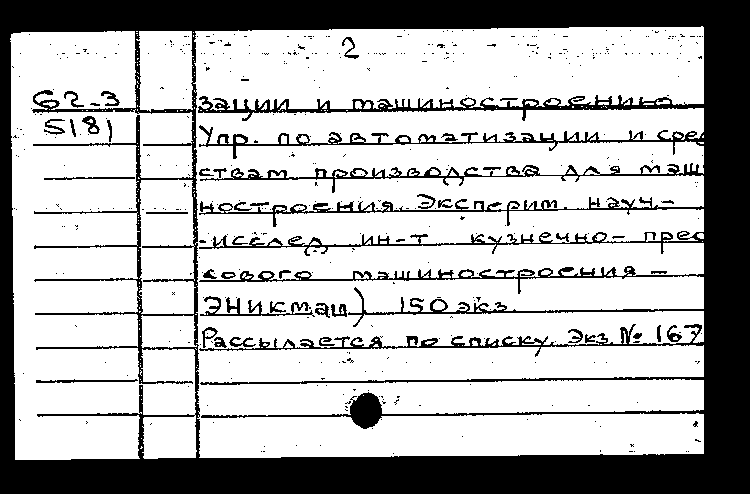 2
62-3 зации и машиностроению.
5181 Упр. по автоматизации и сред
ствам производства для маш
ностроения. Эксперим. науч.-
-исслед. ин-т кузнечно-прес
кового машиностроения -
ЭНИКмаш) 150 экз.
Рассылается по списку. Экз. № 167